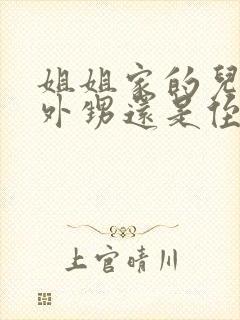 姐姐家的兒
外甥還是侄
上官晴川